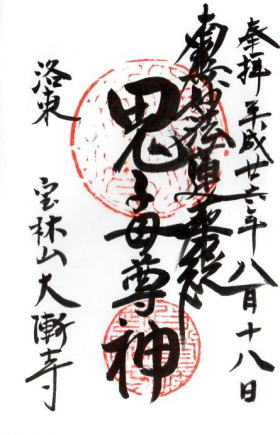 奉拝 平成廿六年 八月十八日
南無妙法蓮華経
鬼子母尊神
洛東
宝林山 大漸寺